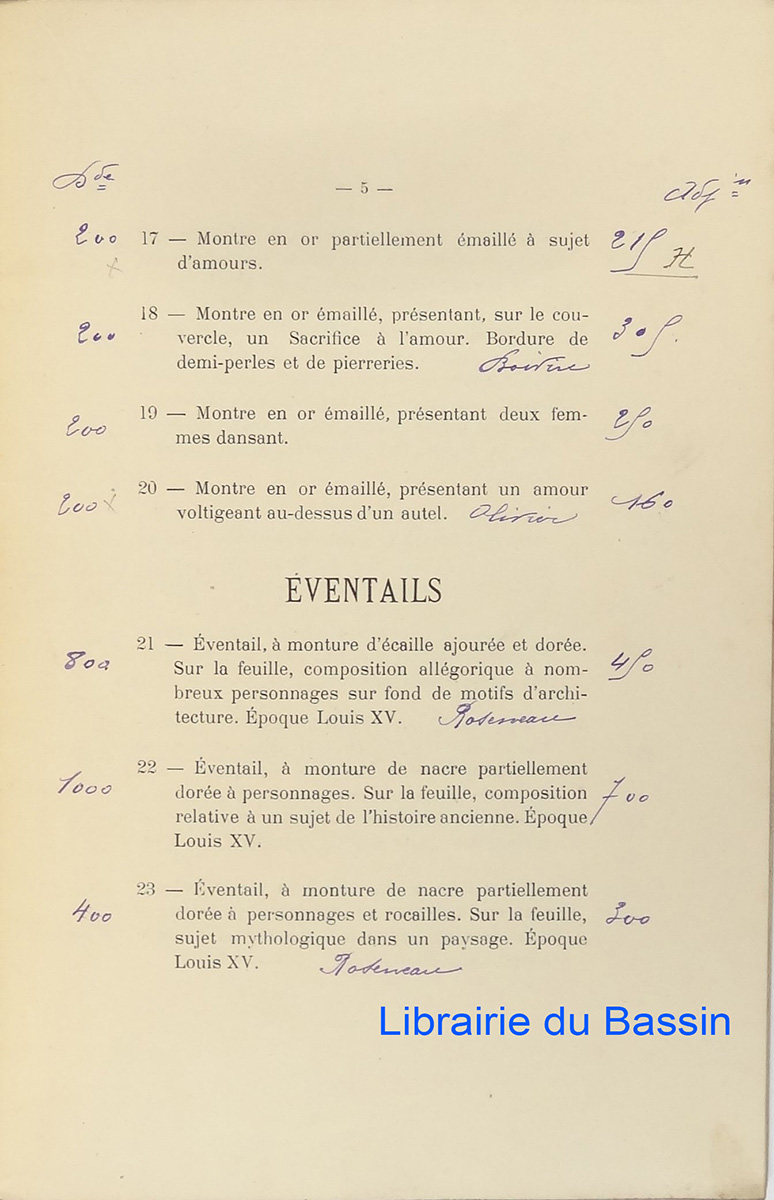 Dde
— 5 —
Adjon
200 17 — Montre en or partiellement émaillé à sujet 215
d'amours. H
18 — Montre en or émaillé, présentant, sur le cou-
200 vercle, un Sacrifice à l'amour. Bordure de 305.
demi-perles et de pierreries.
200 19 — Montre en or émaillé, présentant deux fem- 250
mes dansant.
200 20 — Montre en or émaillé, présentant un amour 160
voltigeant au-dessus d'un autel. Olivier
ÉVENTAILS
21 — Éventail, à monture d'écaille ajourée et dorée.
800 Sur la feuille, composition allégorique à nom- 450
breux personnages sur fond de motifs d'archi-
tecture. Époque Louis XV. Roseneau
22 — Éventail, à monture de nacre partiellement
1000 dorée à personnages. Sur la feuille, composition 700
relative à un sujet de l'histoire ancienne. Époque
Louis XV.
23 — Éventail, à monture de nacre partiellement
400 dorée à personnages et rocailles. Sur la feuille, 300
sujet mythologique dans un paysage. Époque
Louis XV. Roseneau
Librairie du Bassin